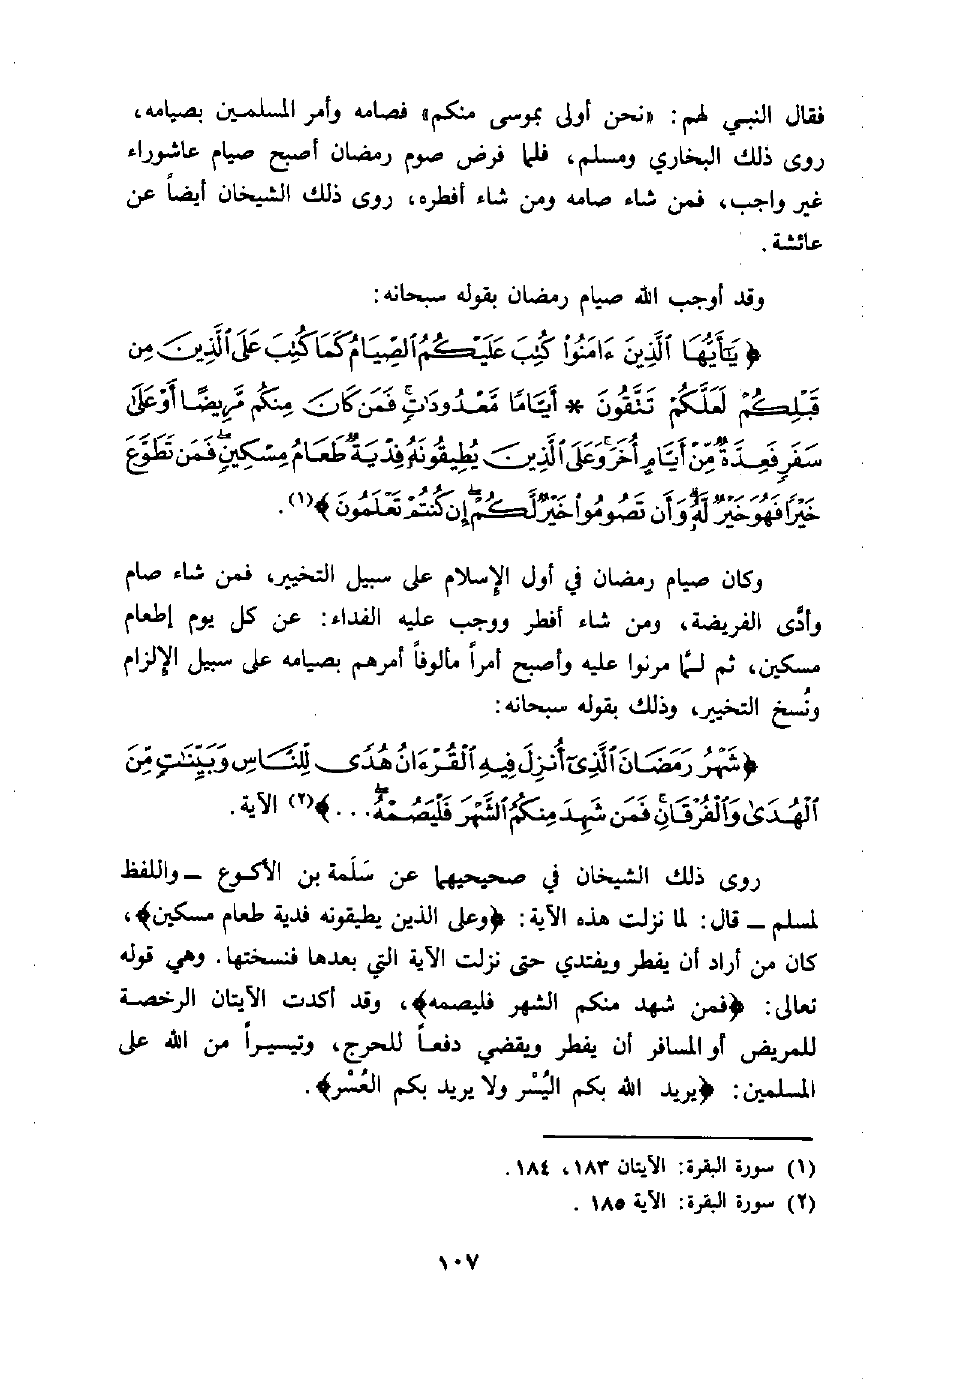 فقال النبي لهم: «نحن أولى بموسى منكم» فصامه وأمر المسلمين بصيامه،
روى ذلك البخاري ومسلم، فلما فرض صوم رمضان أصبح صيام عاشوراء
غير واجب، فمن شاء صامه ومن شاء أفطره، روى ذلك الشيخان أيضاً عن
عائشة.
وقد أوجب الله صيام رمضان بقوله سبحانه:
﴿يَٰٓأَيُّهَا ٱلَّذِينَ ءَامَنُوا۟ كُتِبَ عَلَيْكُمُ ٱلصِّيَامُ كَمَا كُتِبَ عَلَى ٱلَّذِينَ مِن
قَبْلِكُمْ لَعَلَّكُمْ تَتَّقُونَ * أَيَّامًا مَّعْدُودَٰتٍۚ فَمَن كَانَ مِنكُم مَّرِيضًا أَوْ عَلَىٰ
سَفَرٍ فَعِدَّةٌ مِّنْ أَيَّامٍ أُخَرَۚ وَعَلَى ٱلَّذِينَ يُطِيقُونَهُۥ فِدْيَةٌ طَعَامُ مِسْكِينٍۖ فَمَن تَطَوَّعَ
خَيْرًا فَهُوَ خَيْرٌ لَّهُۥۚ وَأَن تَصُومُوا۟ خَيْرٌ لَّكُمْۖ إِن كُنتُمْ تَعْلَمُونَ﴾(١).
وكان صيام رمضان في أول الإسلام على سبيل التخيير، فمن شاء صام
وأدَّى الفريضة، ومن شاء أفطر ووجب عليه الفداء: عن كل يوم إطعام
مسكين، ثم لمَّا مرنوا عليه وأصبح أمراً مألوفاً أمرهم بصيامه على سبيل الإلزام
ونُسخ التخيير، وذلك بقوله سبحانه:
﴿شَهْرُ رَمَضَانَ ٱلَّذِىٓ أُنزِلَ فِيهِ ٱلْقُرْءَانُ هُدًى لِّلنَّاسِ وَبَيِّنَٰتٍ مِّنَ
ٱلْهُدَىٰ وَٱلْفُرْقَانِۚ فَمَن شَهِدَ مِنكُمُ ٱلشَّهْرَ فَلْيَصُمْهُۖ . . .﴾(٢) الآية.
روى ذلك الشيخان في صحيحيهما عن سَلَمة بن الأكوع ــ واللفظ
لمسلم ــ قال: لما نزلت هذه الآية: ﴿وعلى الذين يطيقونه فدية طعام مسكين﴾،
كان من أراد أن يفطر ويفتدي حتى نزلت الآية التي بعدها فنسختها. وهي قوله
تعالى: ﴿فمن شهد منكم الشهر فليصمه﴾، وقد أكدت الآيتان الرخصة
للمريض أو المسافر أن يفطر ويقضي دفعاً للحرج، وتيسيراً من الله على
المسلمين: ﴿يريد الله بكم اليُسْر ولا يريد بكم العُسْر﴾.
(١) سورة البقرة: الآيتان ١٨٣، ١٨٤.
(٢) سورة البقرة: الآية ١٨٥.
١٠٧